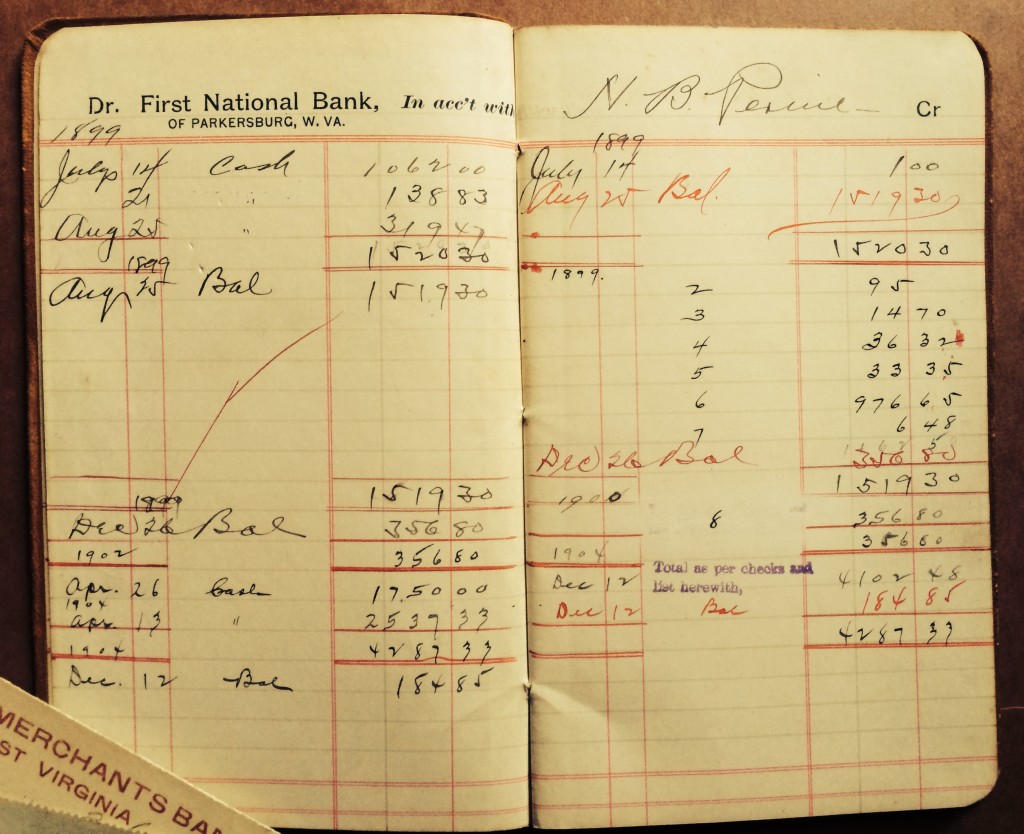 Dr. First National Bank, In acc't with
OF PARKERSBURG, W. VA.
1899
July 14 Cash 1062 00
21 " 138 83
Aug 25 " 319 47
1520 30
1899
Aug 25 Bal 1519 30
1519 30
1899
Dec 26 Bal 356 80
1902 356 80
Apr. 26 Cash 1750 00
1904
Apr. 13 " 2537 33
1904 4287 33
Dec. 12 Bal 184 85
MERCHANTS BAN
ST VIRGINIA
N. B. Perine Cr
1899
July 14 1 00
Aug 25 Bal. 1519 30
1520 30
1899.
2 95
3 14 70
4 36 32
5 33 35
6 976 65
7 6 48
Dec 26 Bal 356 80
1519 30
1900
8 356 80
356 80
1904
Dec 12 Total as per checks and
list herewith, 4102 48
Dec 12 Bal 184 85
4287 33